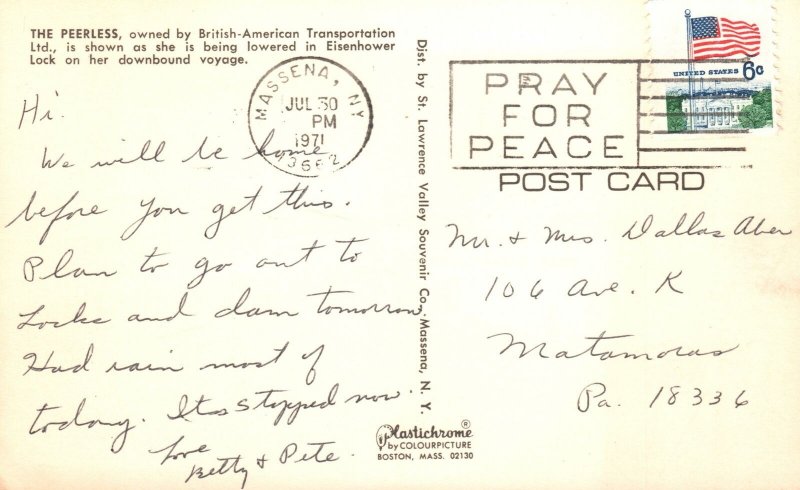 THE PEERLESS, owned by British-American Transportation
Ltd., is shown as she is being lowered in Eisenhower
Lock on her downbound voyage.
Hi.
We will be home
before you get this.
Plan to go out to
Locks and dam tomorrow.
Had rain most of
today. Its stopped now.
Love
Betty & Pete.
Dist. by St. Lawrence Valley Souvenir Co., Massena, N. Y.
MASSENA, NY
JUL 30
PM
1971
13662
PRAY
FOR
PEACE
UNITED STATES 6c
POST CARD
Mr. & Mrs. Dallas Aber
106 Ave. K
Matamoras
Pa. 18336
Plastichrome®
by COLOURPICTURE
BOSTON, MASS. 02130